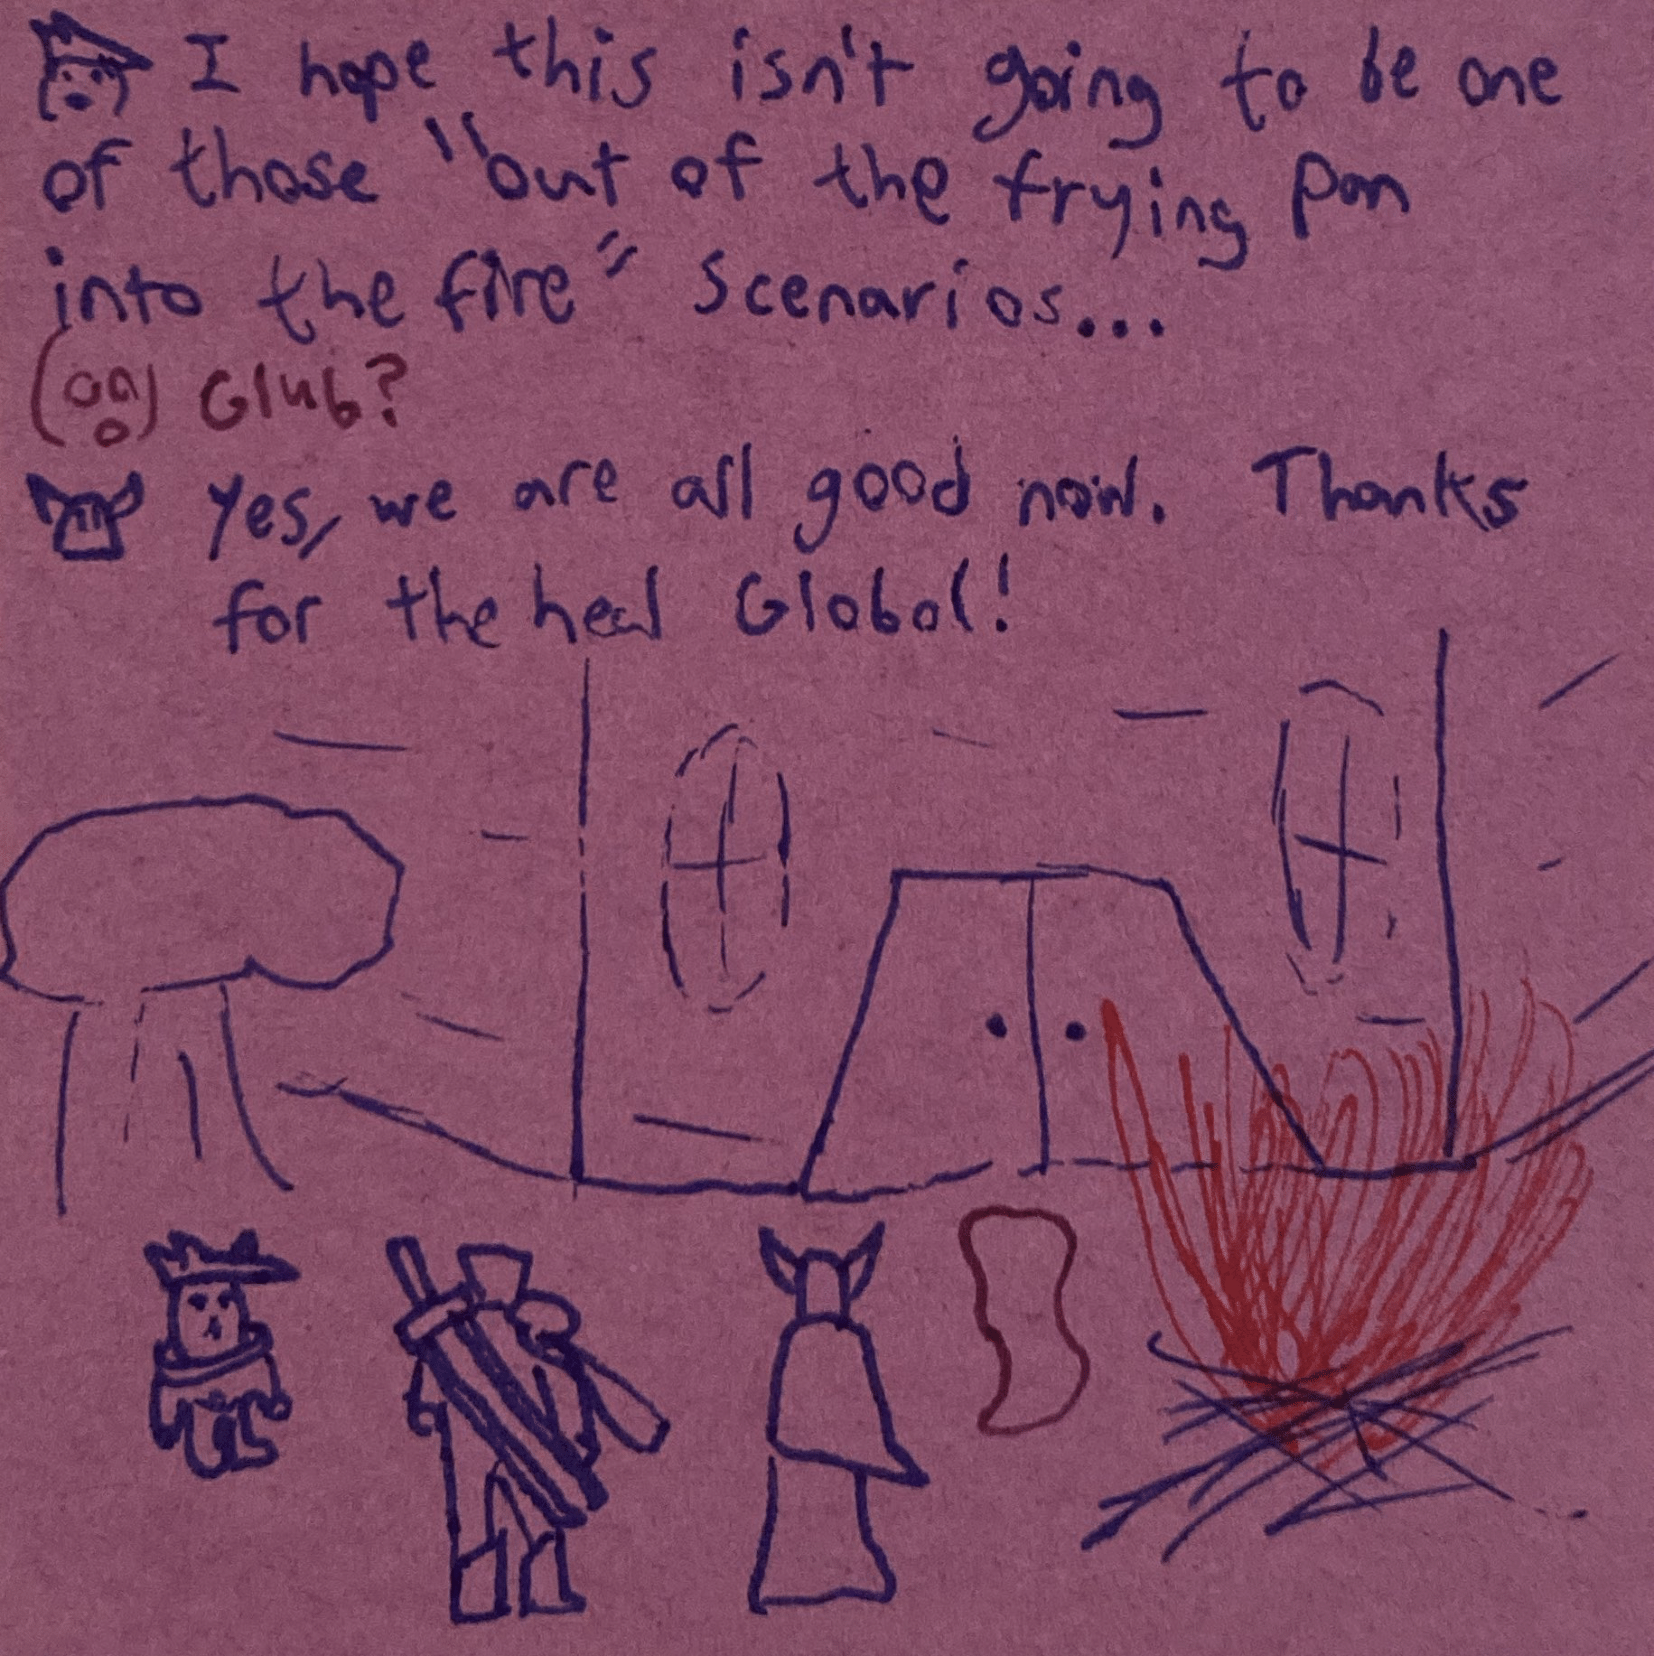 I hope this isn't going to be one
of those "out of the frying pan
into the fire" scenarios...
Glub?
Yes, we are all good now. Thanks
for the heal Globol!